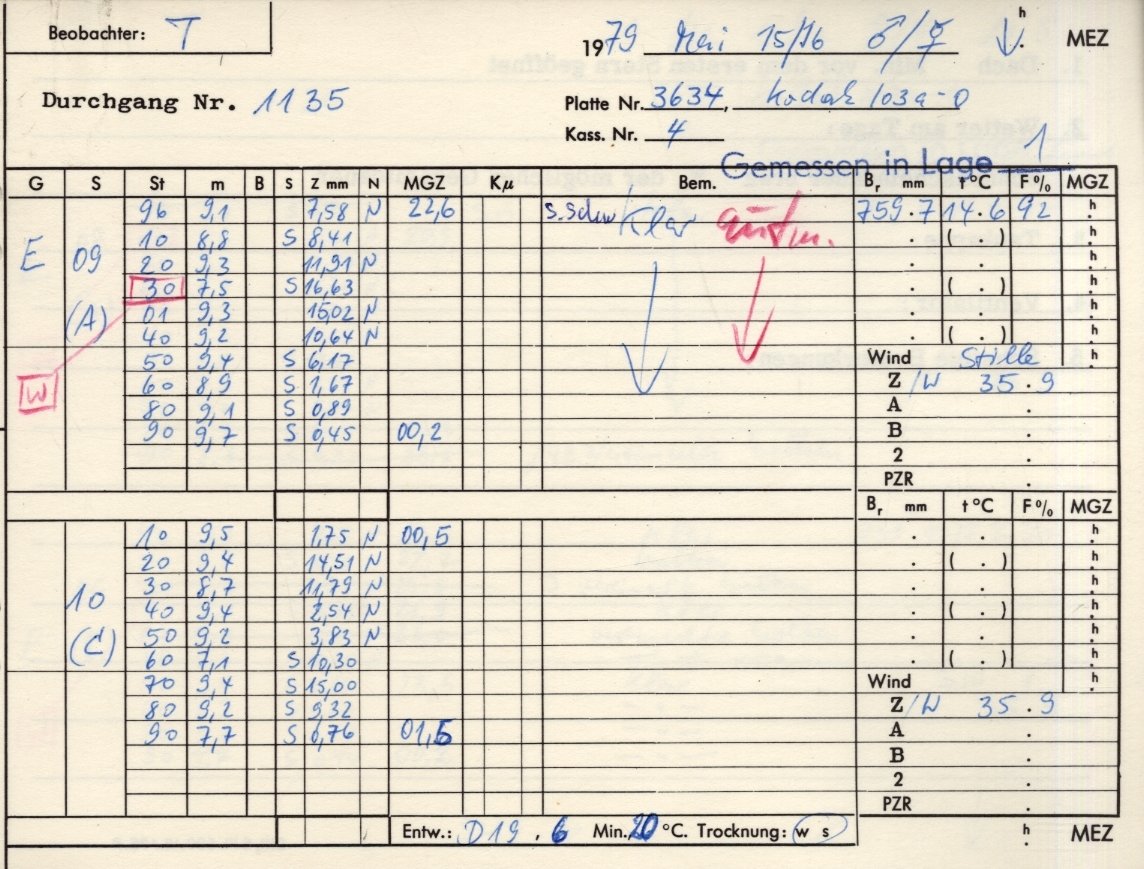 Beobachter: T
1979 Mai 15/16 ♂/♀ h . MEZ
Durchgang Nr. 1135
Platte Nr. 3634, Kodak 103a-O
Kass. Nr. 4
Gemessen in Lage 1
G S St m B S Z mm N MGZ Kμ Bem. Br mm t°C F% MGZ
96 9,1 7,58 N 22,6 s. schw Klar 759.7 14.6 92 h
E 09 10 8,8 S 8,41 . ( . ) h
20 9,3 11,91 N . . h
30 7,5 S 16,63 . ( . ) h
(A) 01 9,3 15,02 N . . h
40 9,2 10,64 N . ( . ) h
50 9,4 S 6,17 Wind Stille h
W 60 8,9 S 1,67 Z /W 35.9
80 9,1 S 0,89 A .
90 9,7 S 0,45 00,2 B .
2 .
PZR .
Br mm t°C F% MGZ
10 9,5 1,75 N 00,5 . . h
20 9,4 14,51 N . ( . ) h
30 8,7 11,79 N . . h
10 40 9,4 2,54 N . ( . ) h
50 9,2 3,83 N . . h
(C) 60 7,1 S 10,30 . ( . ) h
70 9,4 S 15,00 Wind h
80 9,2 S 9,32 Z /W 35.9
90 7,7 S 0,76 01,5 A .
B .
2 .
PZR .
Entw.: D19, 6 Min. 20 °C. Trocknung: (w s) h . MEZ